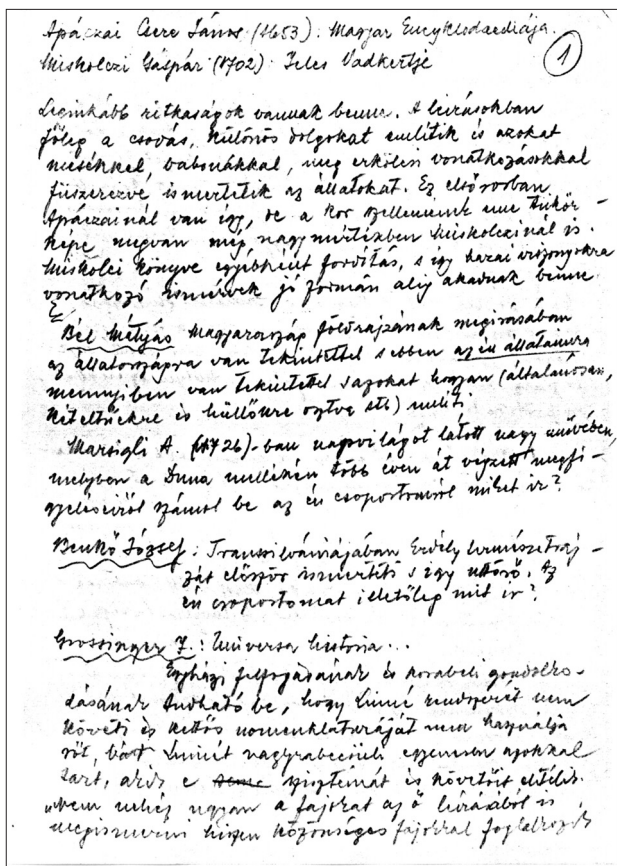 Apáczai Csere János (1653): Magyar Encyklodaediája.
Miskolczi Gáspár (1702): Jeles Vadkertje
1
Leginkább ritkaságok vannak benne. A leírásokban
főleg a csodás, különös dolgokat említik és azokat
mesékkel, babonákkal, meg erkölcsi vonatkozásokkal
fűszerezve ismertetik az állatokat. Ez elsősorban
Apáczainál van így, de a kor szellemének eme tükör-
képe megvan még nagymértékben Miskolczinál is.
Miskolci könyve egyébként fordítás, s így hazai viszonyokra
vonatkozó ismérvek jó formán alig akadnak benne.
Bél Mátyás Magyarország földrajzának megírásában
az állatországra van tekintettel s ebben az én állataimra
mennyiben van tekintettel s azokat hogyan (általánosan,
kétéltűekre és hüllőkre osztva stb) említi
Marsigli A. (1726)-ban napvilágot látott nagy művében,
melyben a Duna mellékén több éven át végzett megfi-
gyeléseiről számol be az én csoportomról miket ír?
Benkő József: Transilvániájában Erdély természetraj-
zát először ismerteti s így úttörő. Az
én csoportomat illetőleg mit ír?
Grossinger J.: Universa historia...
Egyházi felfogásának és korabeli gondolko-
dásának tudható be, hogy Linné rendszerét nem
követi és kettős nomenklaturáját nem használja
sőt, bár Linnét nagyrabecsüli egyenesen azokkal
tart, akik e szisztémát és követőit elítélik.
„Nem nehéz ugyan a fajokat az ő leírásából is
megismerni hiszen közönséges fajokkal foglalkozik